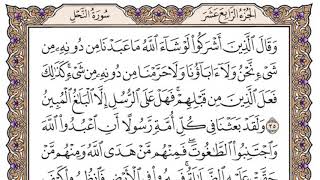 الجزء الرابع عشر
سورة النحل
وَقَالَ ٱلَّذِينَ أَشْرَكُوا۟ لَوْ شَآءَ ٱللَّهُ مَا عَبَدْنَا مِن دُونِهِۦ مِن
شَىْءٍ نَّحْنُ وَلَآ ءَابَآؤُنَا وَلَا حَرَّمْنَا مِن دُونِهِۦ مِن شَىْءٍ كَذَٰلِكَ
فَعَلَ ٱلَّذِينَ مِن قَبْلِهِمْ فَهَلْ عَلَى ٱلرُّسُلِ إِلَّا ٱلْبَلَٰغُ ٱلْمُبِينُ
٣٥ وَلَقَدْ بَعَثْنَا فِى كُلِّ أُمَّةٍ رَّسُولًا أَنِ ٱعْبُدُوا۟ ٱللَّهَ
وَٱجْتَنِبُوا۟ ٱلطَّٰغُوتَ فَمِنْهُم مَّنْ هَدَى ٱللَّهُ وَمِنْهُم مَّنْ
حَقَّتْ عَلَيْهِ ٱلضَّلَٰلَةُ فَسِيرُوا۟ فِى ٱلْأَرْضِ فَٱنظُرُوا۟ كَيْفَ